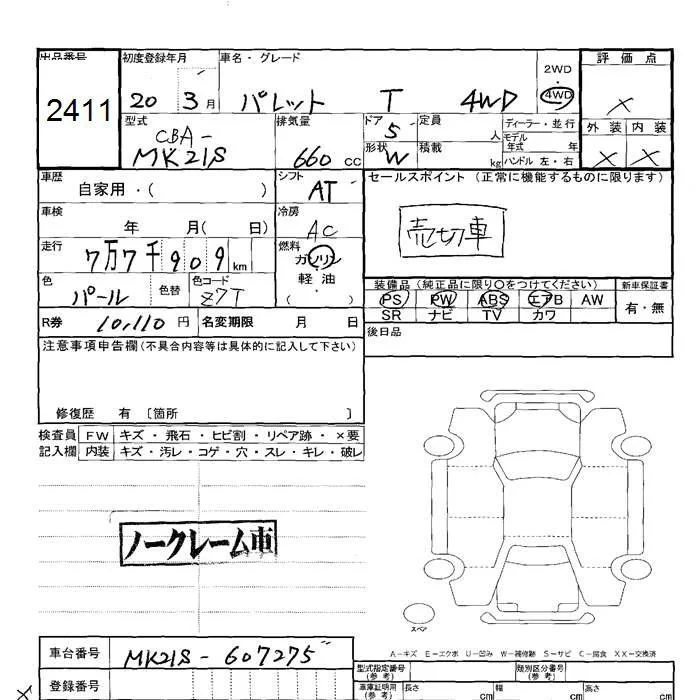 出品番号 初度登録年月 車名・グレード 2WD 評価点
2411 20 3月 パレット T 4WD 4WD ×
型式 排気量 ドア 定員 ディーラー・並行 外装 内装
CBA-
MK21S 660 cc 5 人 モデル年式 年 × ×
形状 W 積載 kg ハンドル 左・右
車歴 シフト セールスポイント (正常に機能するものに限ります)
自家用・( ) AT
車検 冷房
年 月( 日) AC 売切車
走行 燃料
7万7千909km ガソリン
軽・油
( )
色 色替 色コード 装備品(純正品に限り○をつけてください) 新車保証書
パール Z7T PS PW ABS エアB AW 有・無
SR ナビ TV カワ
R券 10,110円 名変期限 月 日 後日品
注意事項申告欄(不具合内容等は具体的に記入して下さい)
修復歴 有 〔箇所 〕
検査員 FW キズ・飛石・ヒビ割・リペア跡・×要
記入欄 内装 キズ・汚レ・コゲ・穴・スレ・キレ・破レ
ノークレーム車
スペア
A-キズ E-エクボ U-凹み W-補修跡 S-サビ C-腐食 XX-交換済
車台番号 MK21S-607275
型式指定番号(参考) 類別区分番号(参考)
登録番号 車庫証明用(参考) 長さ cm 幅 cm 高さ cm
×